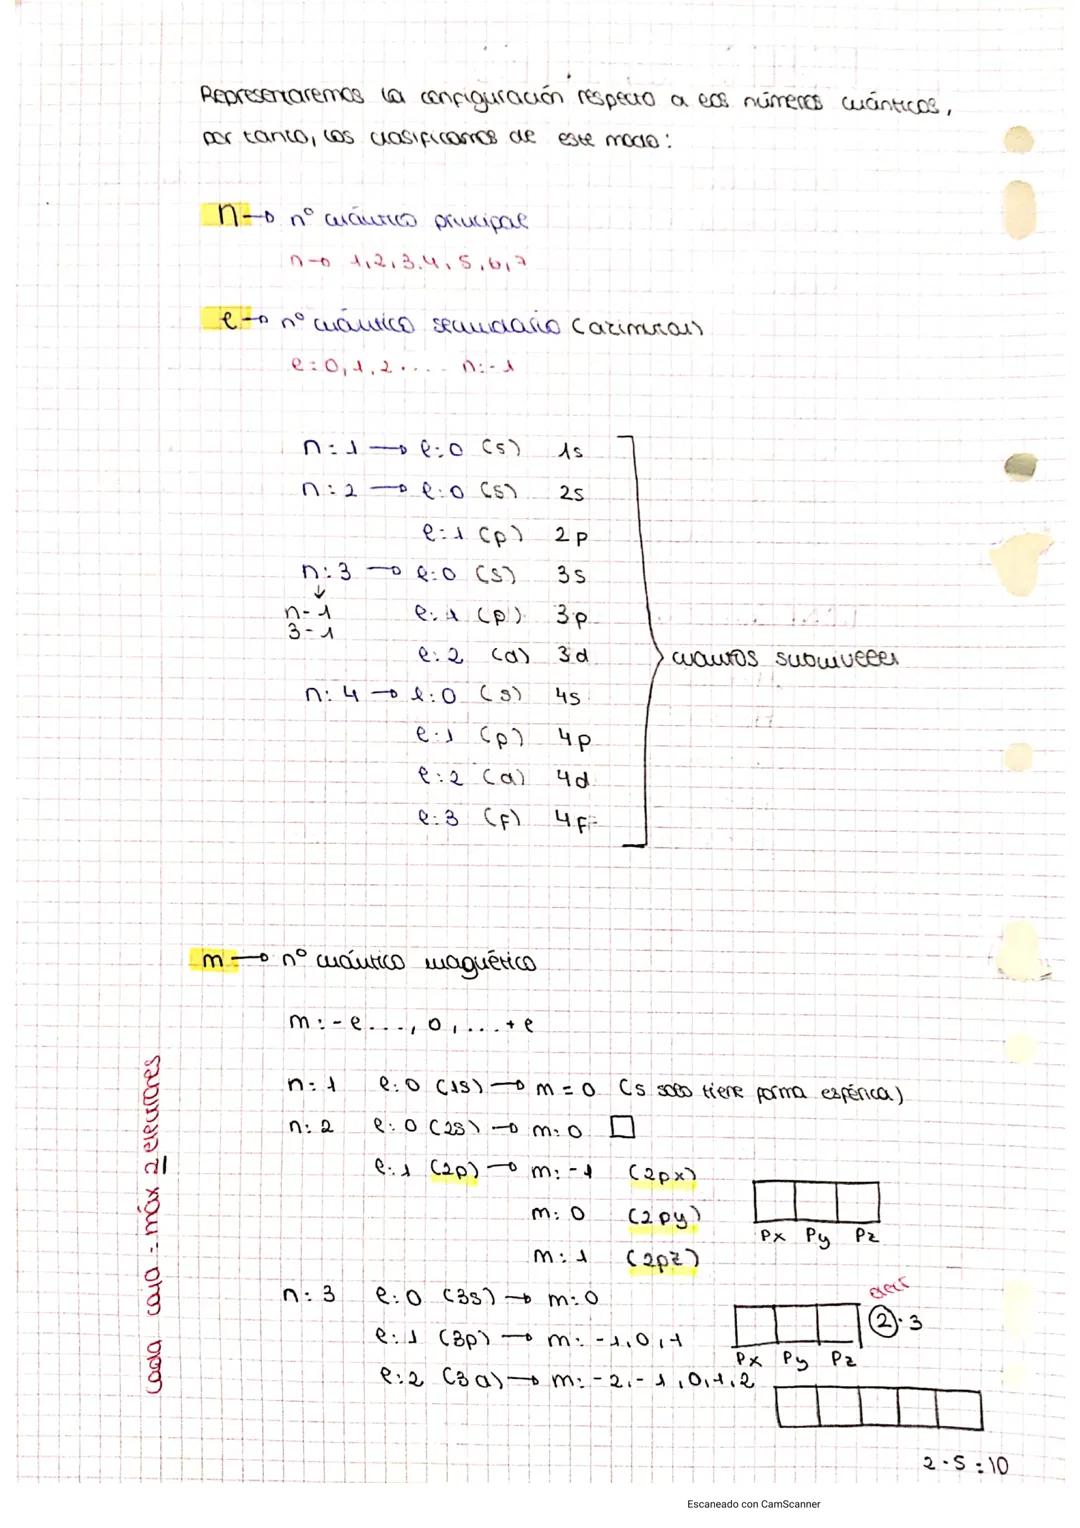 Representaremos la configuración respecto a los números cuánticos,
por tanto, los clasificamos de este modo:
n → nº cuántico principal
n → 1,2,3,4,5,6,7
l → nº cuántico secundario (azimutal)
l=0,1,2.... n:-1
n:1 → l:0 (s) 1s
n:2 → l:0 (s) 2s
l:1 (p) 2p
n:3 → l:0 (s) 3s
↓
n-1 l:1 (p) 3p
3-1
l:2 (d) 3d
cuantos subniveles
n:4 → l:0 (s) 4s
l:1 (p) 4p
l:2 (d) 4d
l:3 (f) 4f
m → nº cuántico magnético
m:-l...,0,...+l
n:1 l:0 (1s) → m=0 (s solo tiene forma esférica)
n:2 l:0 (2s) → m:0
l:1 (2p) → m:-1 (2px)
m:0 (2py)
Px Py Pz
m:1 (2pz)
n:3 l:0 (3s) → m:0
elect
2·3
l:1 (3p) → m:-1,0,1
Px Py Pz
l:2 (3d) → m:-2,-1,0,1,2
2·5:10
cada caja = máx 2 electrones
Escaneado con CamScanner